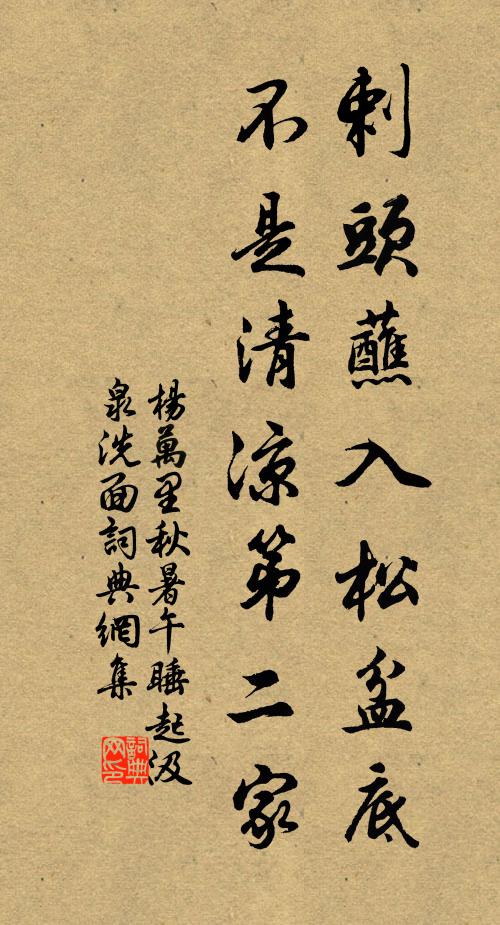 刺頭蘸入松盆底
不是清涼第二家
楊萬里秋暑午睡起汲
泉洗面詞典網集
詞典
网印